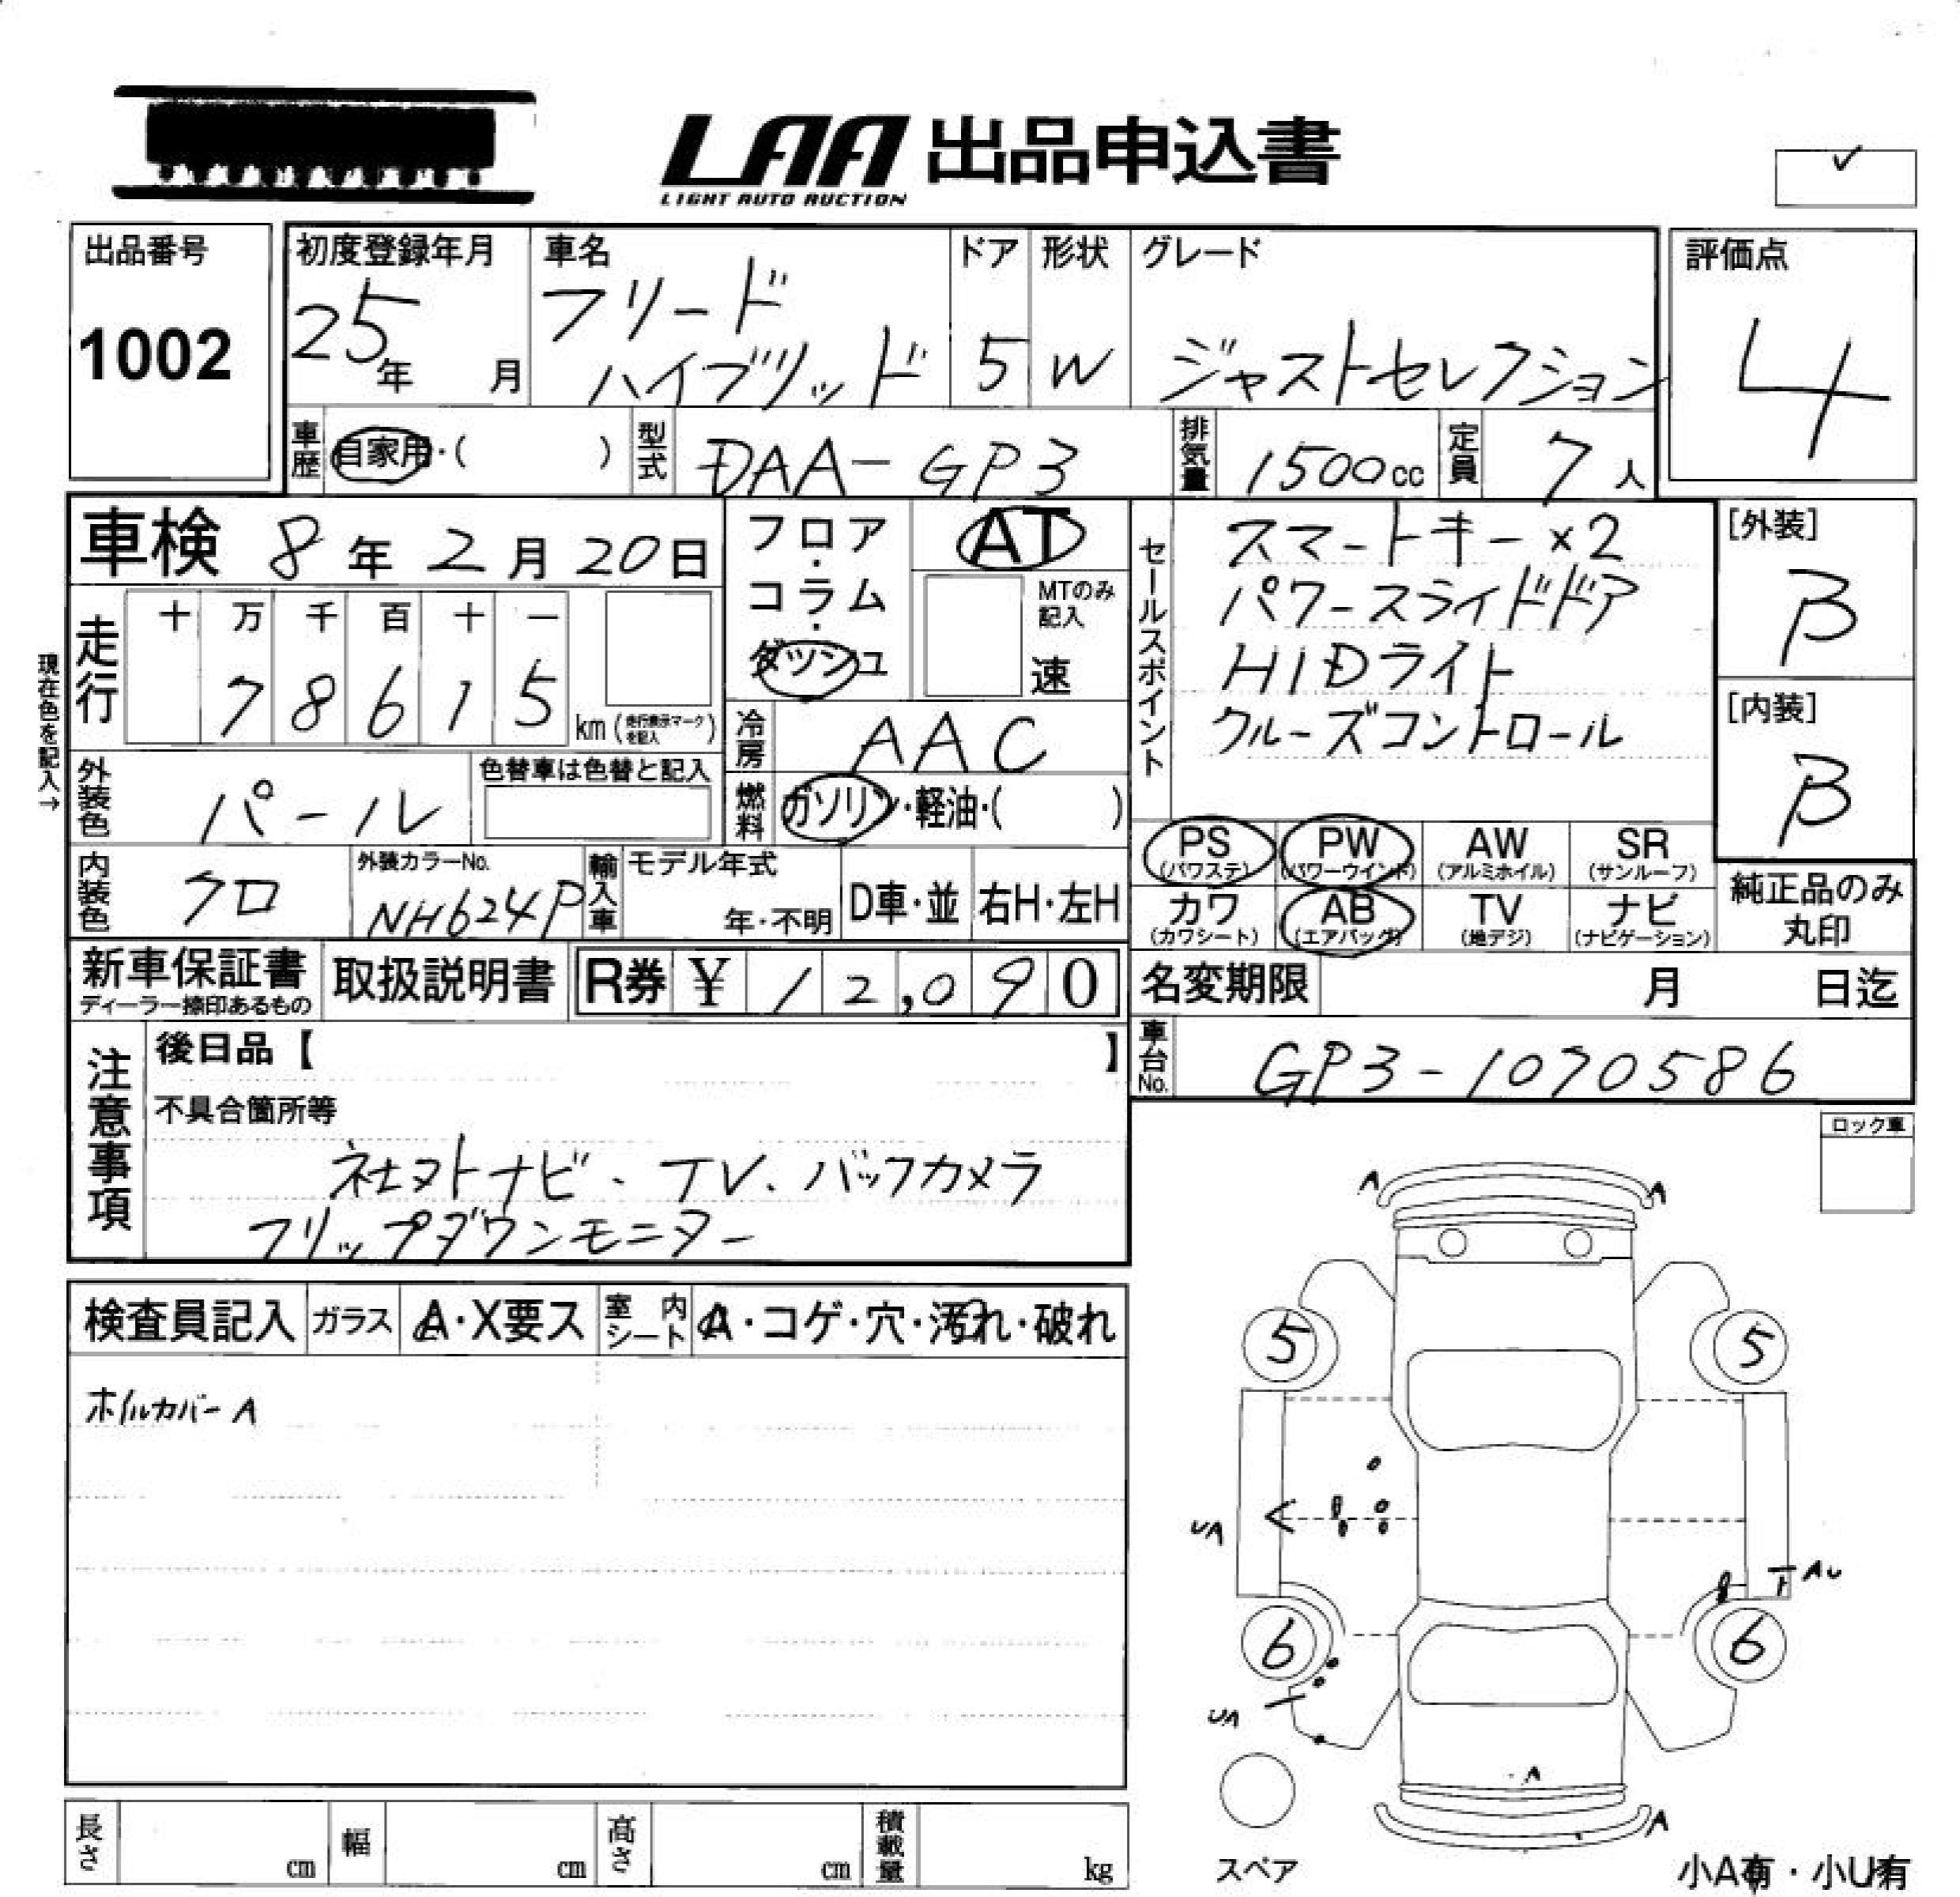 LAA 出品申込書
LIGHT AUTO AUCTION
✓
出品番号
1002
初度登録年月
25年 月
車名
フリード
ハイブリッド
ドア
5
形状
W
グレード
ジャストセレクション
評価点
4
車歴 自家用・( )
型式 DAA-GP3
排気量 1500cc
定員 7人
車検 8年2月20日
フロア・コラム・ダッシュ
AT
MTのみ記入
速
現在色を記入→
走行
十 万 千 百 十 一
7 8 6 1 5
km (走行表示マークを記入)
冷房 AAC
外装色 パール
色替車は色替と記入
燃料 ガソリン・軽油・( )
内装色 クロ
外装カラーNo.
NH624P
輸入車
モデル年式
年・不明
D車・並
右H・左H
セールスポイント
スマートキー×2
パワースライドドア
HIDライト
クルーズコントロール
[外装]
B
[内装]
B
PS (パワステ)
PW (パワーウインド)
AW (アルミホイル)
SR (サンルーフ)
カワ (カワシート)
AB (エアバッグ)
TV (地デジ)
ナビ (ナビゲーション)
純正品のみ
丸印
新車保証書
ディーラー捺印あるもの
取扱説明書
R券 ¥ 12,090
名変期限 月 日迄
車台No. GP3-1070586
注意事項
後日品【 】
不具合箇所等
社外ナビ、TV、バックカメラ
フリップダウンモニター
ロック車
検査員記入
ガラス A・X要ス
室内シート A・コゲ・穴・汚れ・破れ
ホイルカバーA
A
A
5
5
UA
AU
6
6
UA
A
A
スペア
小A有・小U有
長さ cm
幅 cm
高さ cm
積載量 kg